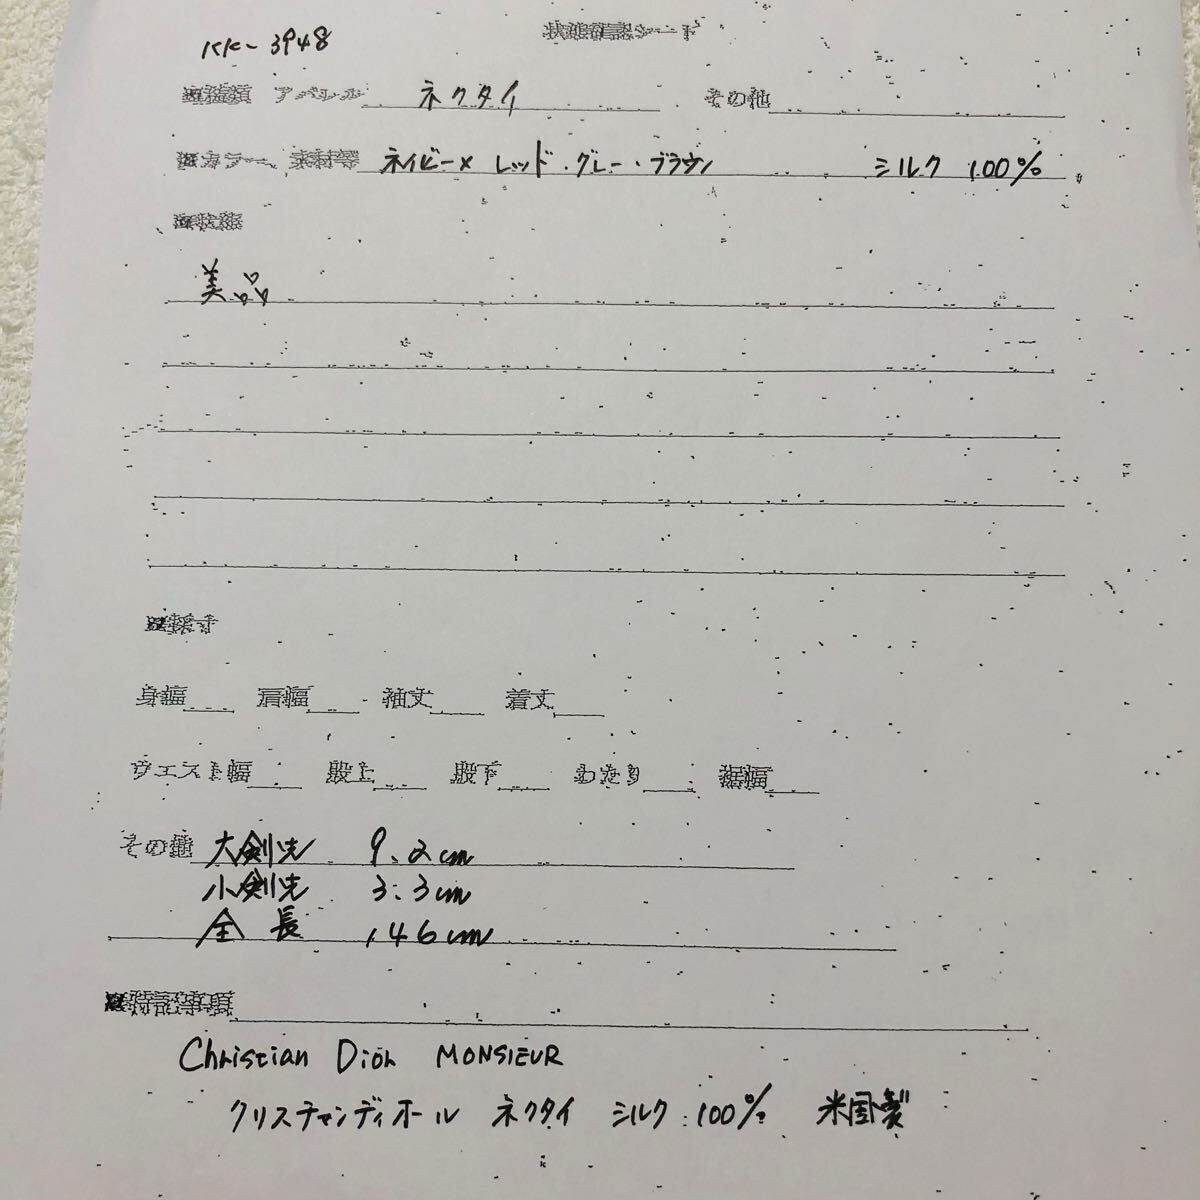 KK-3948
状態確認シート
■種類 アパレル ネクタイ その他
■カラー、素材等 ネイビー×レッド・グレー・ブラウン シルク 100%
■状態
美品
■採寸
身幅 肩幅 袖丈 着丈
ウエスト幅 股上 股下 わたり 裾幅
その他 大剣先 9.2cm
小剣先 3.3cm
全長 146cm
■特記事項
Christian Dior MONSIEUR
クリスチャンディオール ネクタイ シルク 100% 米国製